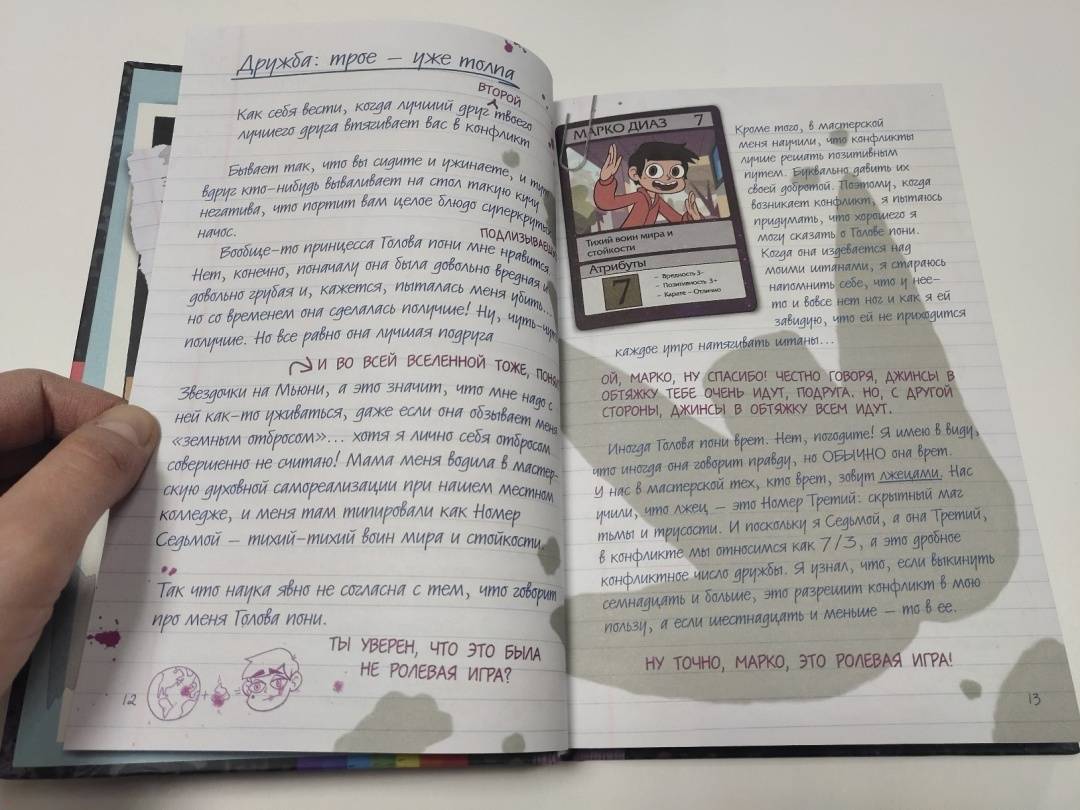 Дружба: трое — уже толпа
ВТОРОЙ
Как себя вести, когда лучший друг твоего
лучшего друга втягивает вас в конфликт
Бывает так, что вы сидите и ужинаете, и тут
вдруг кто-нибудь вываливает на стол такую кучу
негатива, что портит вам целое блюдо суперкрутых
начос.
ПОДЛИЗЫВАЕШЬ
Вообще-то принцесса Голова пони мне нравится.
Нет, конечно, поначалу она была довольно вредная и
довольно грубая и, кажется, пыталась меня убить...
но со временем она сделалась получше! Ну, чуть-чуть
получше. Но все равно она лучшая подруга
И ВО ВСЕЙ ВСЕЛЕННОЙ ТОЖЕ,
Звездочки на Мьюни, а это значит, что мне надо с
ней как-то уживаться, даже если она обзывает меня
«земным отбросом»... хотя я лично себя отбросом
совершенно не считаю! Мама меня водила в мастер-
скую духовной самореализации при нашем местном
колледже, и меня там типировали как Номер
Седьмой — тихий-тихий воин мира и стойкости.
Так что наука явно не согласна с тем, что говорит
про меня Голова пони.
ТЫ УВЕРЕН, ЧТО ЭТО БЫЛА
НЕ РОЛЕВАЯ ИГРА?
12
МАРКО ДИАЗ 7
Тихий воин мира и
стойкости
Атрибуты
7
– Вредность 3-
– Позитивность 3+
– Карате – Отлично
Кроме того, в мастерской
меня научили, что конфликты
лучше решать позитивным
путем. Буквально давить их
своей добротой. Поэтому, когда
возникает конфликт, я пытаюсь
придумать, что хорошего я
могу сказать о Голове пони.
Когда она издевается над
моими штанами, я стараюсь
напомнить себе, что у нее-
то и вовсе нет ног и как я ей
завидую, что ей не приходится
каждое утро натягивать штаны...
ОЙ, МАРКО, НУ СПАСИБО! ЧЕСТНО ГОВОРЯ, ДЖИНСЫ В
ОБТЯЖКУ ТЕБЕ ОЧЕНЬ ИДУТ, ПОДРУГА. НО, С ДРУГОЙ
СТОРОНЫ, ДЖИНСЫ В ОБТЯЖКУ ВСЕМ ИДУТ.
Иногда Голова пони врет. Нет, погодите! Я имею в виду,
что иногда она говорит правду, но ОБЫЧНО она врет.
У нас в мастерской тех, кто врет, зовут лжецами. Нас
учили, что лжец — это Номер Третий: скрытный маг
тьмы и трусости. И поскольку я Седьмой, а она Третий,
в конфликте мы относимся как 7/3, а это дробное
конфликтное число дружбы. Я узнал, что, если выкинуть
семнадцать и больше, это разрешит конфликт в мою
пользу, а если шестнадцать и меньше — то в ее.
НУ ТОЧНО, МАРКО, ЭТО РОЛЕВАЯ ИГРА!
13